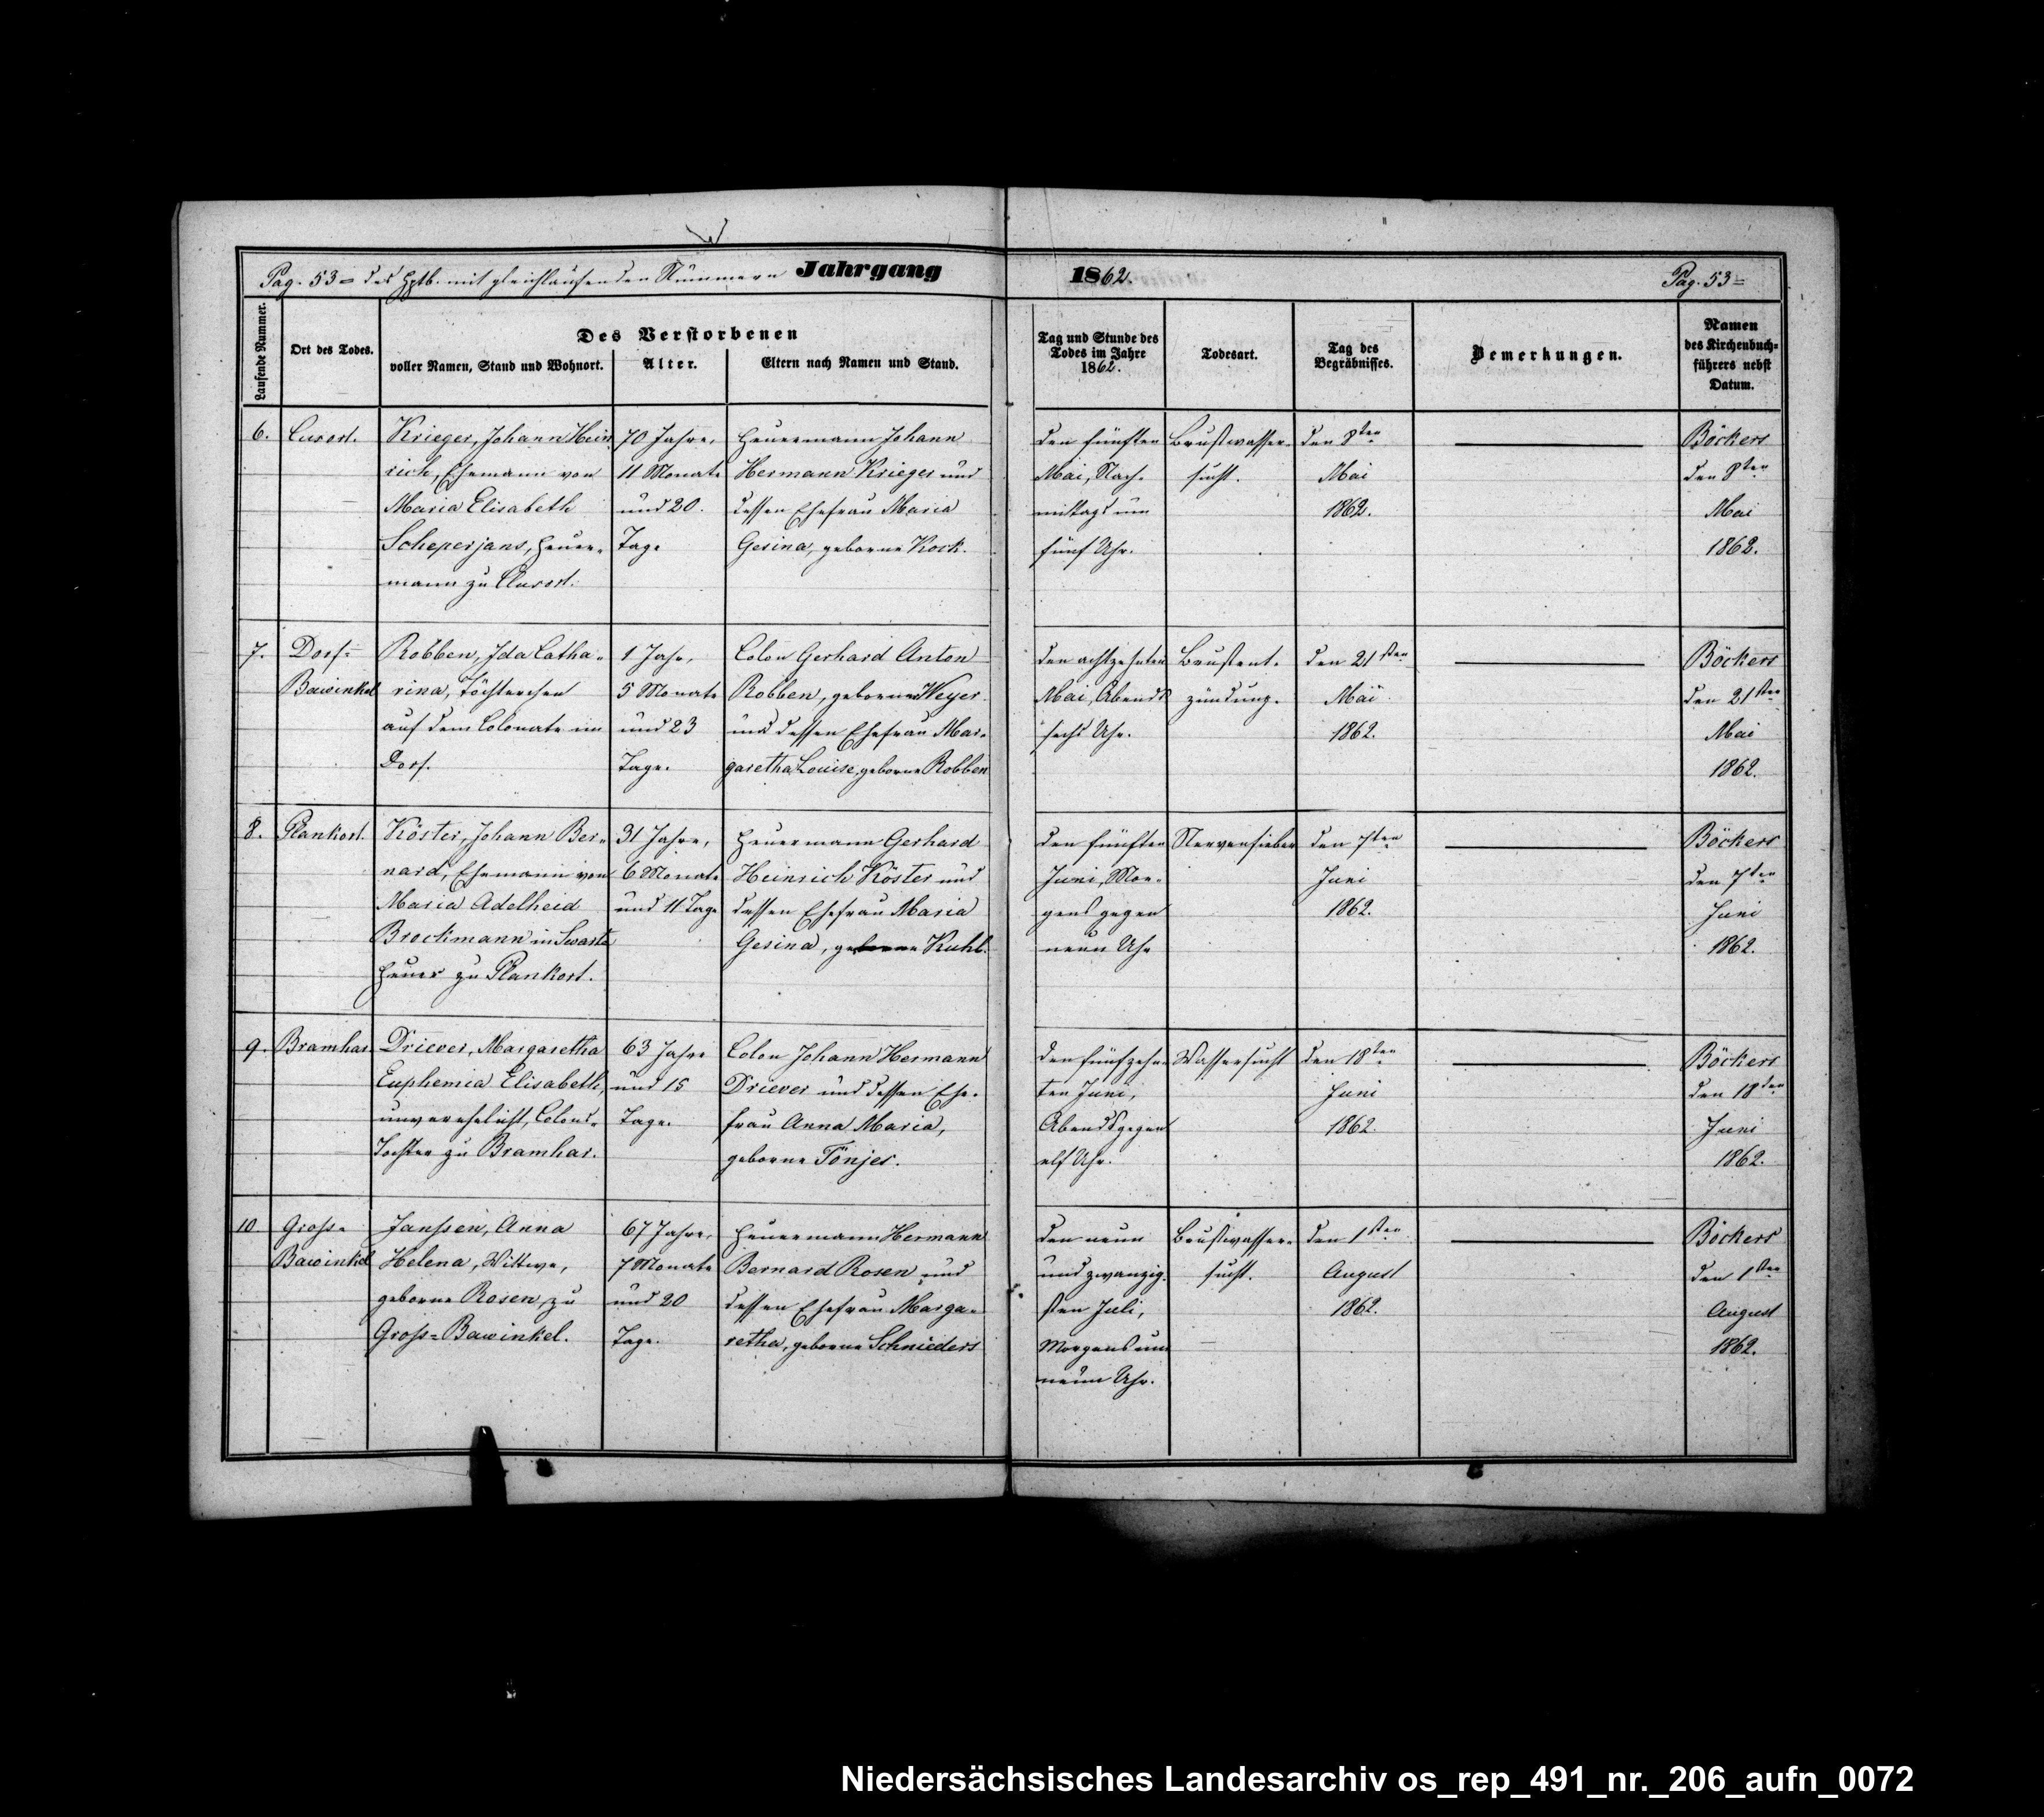 Pag. 53= des Hptb. mit gleichlaufenden Nummern Jahrgang 1862. Pag. 53=
Laufende Nummer.
Ort des Todes.
Des Verstorbenen
voller Namen, Stand und Wohnort.
Alter.
Eltern nach Namen und Stand.
Tag und Stunde des
Todes im Jahre
1862.
Todesart.
Tag des
Begräbnisses.
Bemerkungen.
Namen
des Kirchenbuch-
führers nebst
Datum.
6.
Clusort.
Krieger, Johann Hein
rich, Ehemann von
Maria Elisabeth
Scheperjans, Heuer-
mann zu Clusort.
70 Jahre,
11 Monate
und 20.
Tage
Heuermann Johann
Hermann Krieger und
dessen Ehefrau Maria
Gesina, geborne Kock.
den fünften
Mai, Nach-
mittags um
fünf Uhr.
Brustwasser-
sucht.
den 8ten
Mai
1862.
Böckers
den 8ten
Mai
1862.
7.
Dorf=
Bawinkel
Robben, Ida Catha-
rina, Töchterchen
auf dem Colonate im
Dorf.
1 Jahr,
5 Monate
und 23
Tage.
Colon Gerhard Anton
Robben, geborner Weyer
und dessen Ehefrau Mar-
garetha Louise, geborne Robben
den achtzehnten
Mai, Abends
sechs Uhr.
Brustent-
zündung.
den 21sten
Mai
1862.
Böckers
den 21sten
Mai
1862.
8.
Plankort.
Köster, Johann Ber-
nard, Ehemann von
Maria Adelheid
Brockmann in Swarte
Heuer zu Plankort.
31 Jahre,
6 Monate
und 11 Tage
Heuermann Gerhard
Heinrich Köster und
dessen Ehefrau Maria
Gesina, geborne Kuhl.
den fünften
Juni, Mor-
gens gegen
neun Uhr
Nervenfieber
den 7ten
Juni
1862.
Böckers
den 7ten
Juni
1862.
9.
Bramhar.
Driever, Margaretha
Euphemia Elisabeth,
unverehelicht, Colons-
Tochter zu Bramhar.
63 Jahre
und 15
Tage.
Colon Johann Hermann
Driever und dessen Ehe-
frau Anna Maria,
geborne Tönjes.
den fünfzehn-
ten Juni,
Abends gegen
elf Uhr.
Wassersucht
den 18ten
Juni
1862.
Böckers
den 18ten
Juni
1862.
10
Groß-
Bawinkel
Janßen, Anna
Helena, Wittwe,
geborne Rosen, zu
Groß=Bawinkel.
67 Jahre,
7 Monate
und 20
Tage.
Heuermann Hermann
Bernard Rosen und
dessen Ehefrau Marga-
retha, geborne Schnieders
den neun
und zwanzig-
sten Juli,
Morgens um
neun Uhr.
Brustwasser-
sucht.
den 1sten
August
1862.
Böckers
den 1sten
August
1862.
Niedersächsisches Landesarchiv os_rep_491_nr._206_aufn_0072